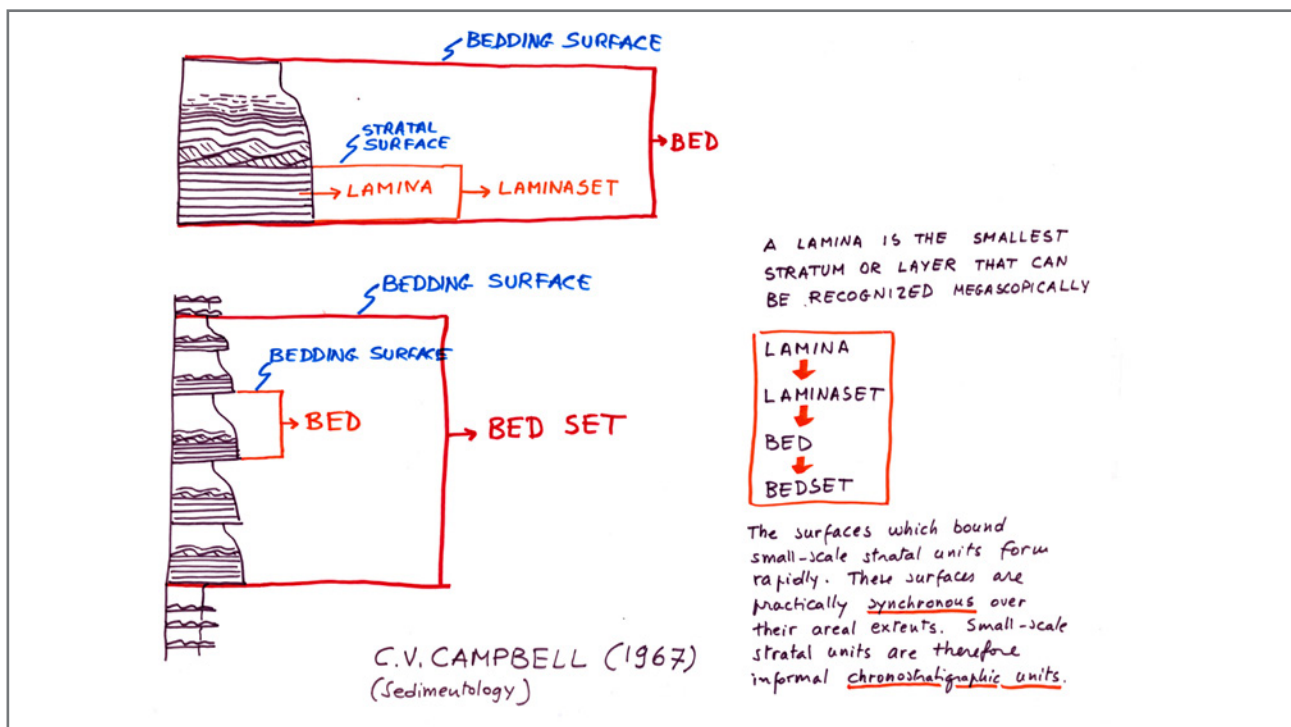 BEDDING SURFACE
STRATAL
SURFACE
BED
LAMINA
LAMINASET
BEDDING SURFACE
BEDDING SURFACE
BED
BED SET
C.V. CAMPBELL (1967)
(Sedimentology)
A LAMINA IS THE SMALLEST
STRATUM OR LAYER THAT CAN
BE RECOGNIZED MEGASCOPICALLY
LAMINA
LAMINASET
BED
BEDSET
The surfaces which bound
small-scale stratal units form
rapidly. These surfaces are
practically synchronous over
their areal extents. Small-scale
stratal units are therefore
informal chronostratigraphic units.